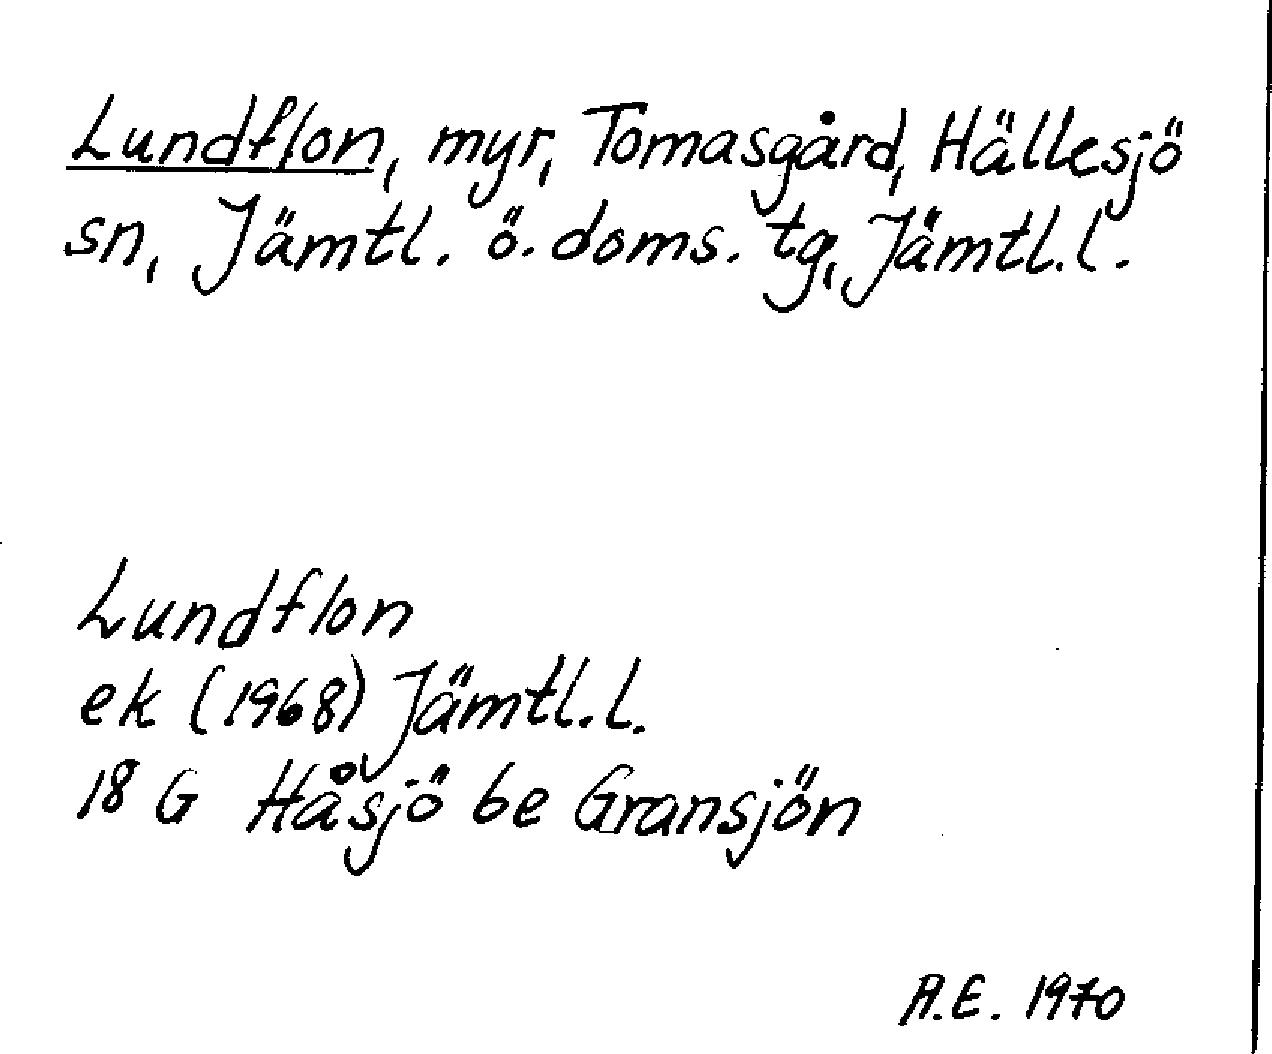 Lundflon, myr, Tomasgård, Hällesjö
sn, Jämtl. ö. doms. tg, Jämtl. l.
Lundflon
ek (1968) Jämtl. l.
18 G Håsjö be Gransjön
A.E. 1970